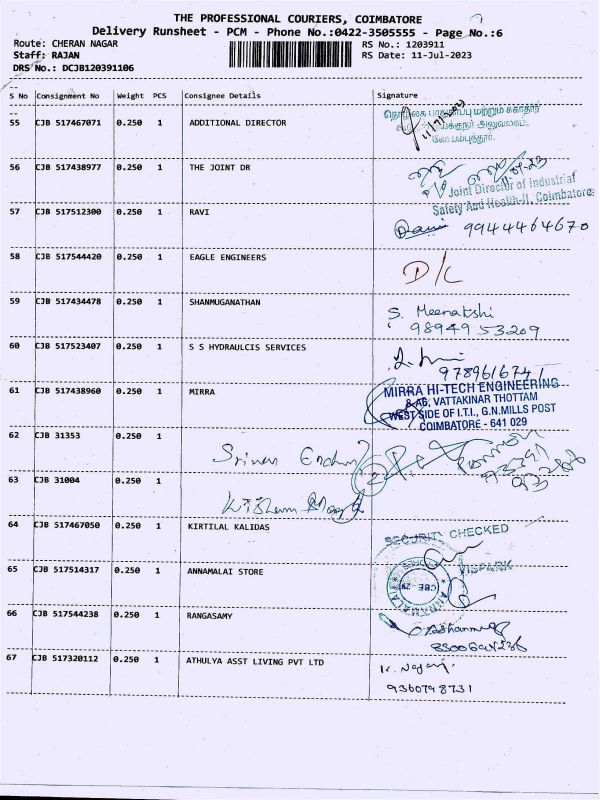 THE PROFESSIONAL COURIERS, COIMBATORE
Delivery Runsheet - PCM - Phone No.:0422-3505555 - Page No.:6
Route: CHERAN NAGAR RS No.: 1203911
Staff: RAJAN RS Date: 11-Jul-2023
DRS No.: DCJB120391106
S No Consignment No Weight PCS Consignee Details Signature
55 CJB 517467071 0.250 1 ADDITIONAL DIRECTOR
56 CJB 517438977 0.250 1 THE JOINT DR
Joint Director of Industrial
Safety And Health-II, Coimbatore.
57 CJB 517512300 0.250 1 RAVI
9944464670
58 CJB 517544420 0.250 1 EAGLE ENGINEERS D/L
59 CJB 517434478 0.250 1 SHANMUGANATHAN S. Meenakshi
98949 53209
60 CJB 517523407 0.250 1 S S HYDRAULCIS SERVICES
9789616741
61 CJB 517438960 0.250 1 MIRRA MIRRA HI-TECH ENGINEERING
VATTAKINAR THOTTAM
WEST SIDE OF I.T.I., G.N.MILLS POST
COIMBATORE - 641 029
62 CJB 31353 0.250 1
63 CJB 31004 0.250 1
64 CJB 517467050 0.250 1 KIRTILAL KALIDAS SECURITY CHECKED
65 CJB 517514317 0.250 1 ANNAMALAI STORE
66 CJB 517544238 0.250 1 RANGASAMY
67 CJB 517320112 0.250 1 ATHULYA ASST LIVING PVT LTD
9360798731